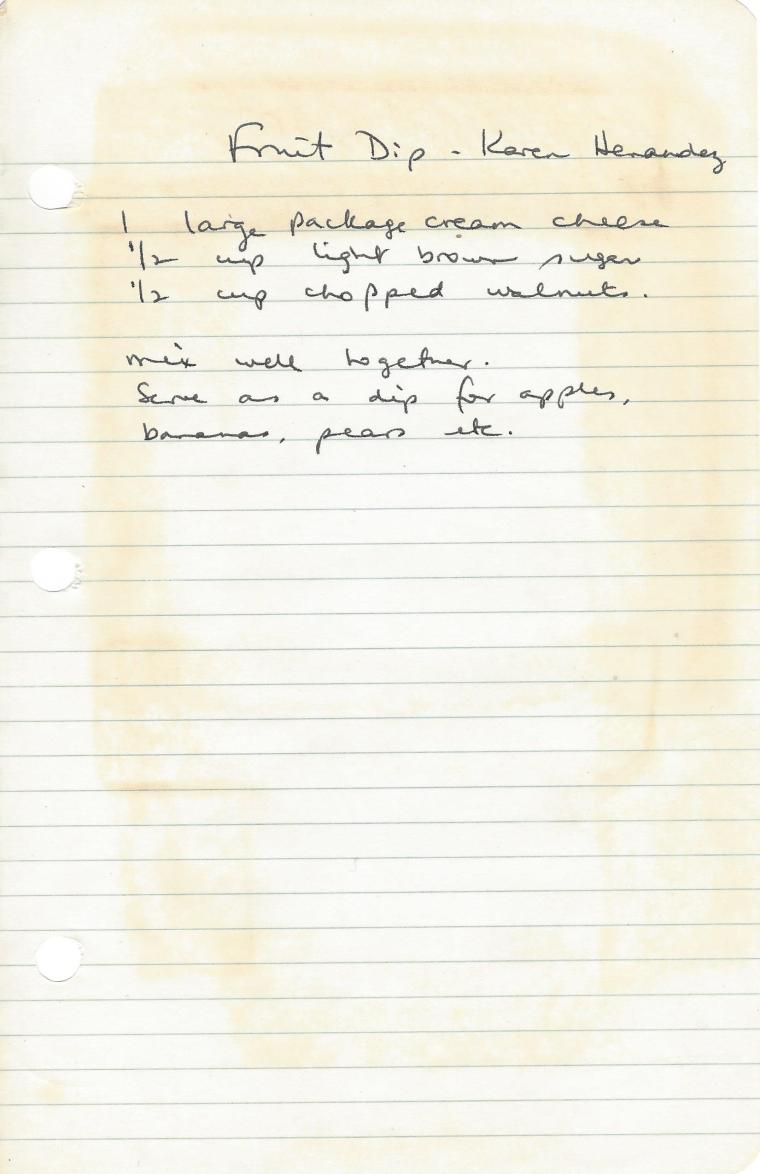 Fruit Dip - Karen Hernandez
1 large package cream cheese
1/2 cup light brown sugar
1/2 cup chopped walnuts.
mix well together.
Serve as a dip for apples,
bananas, pears etc.